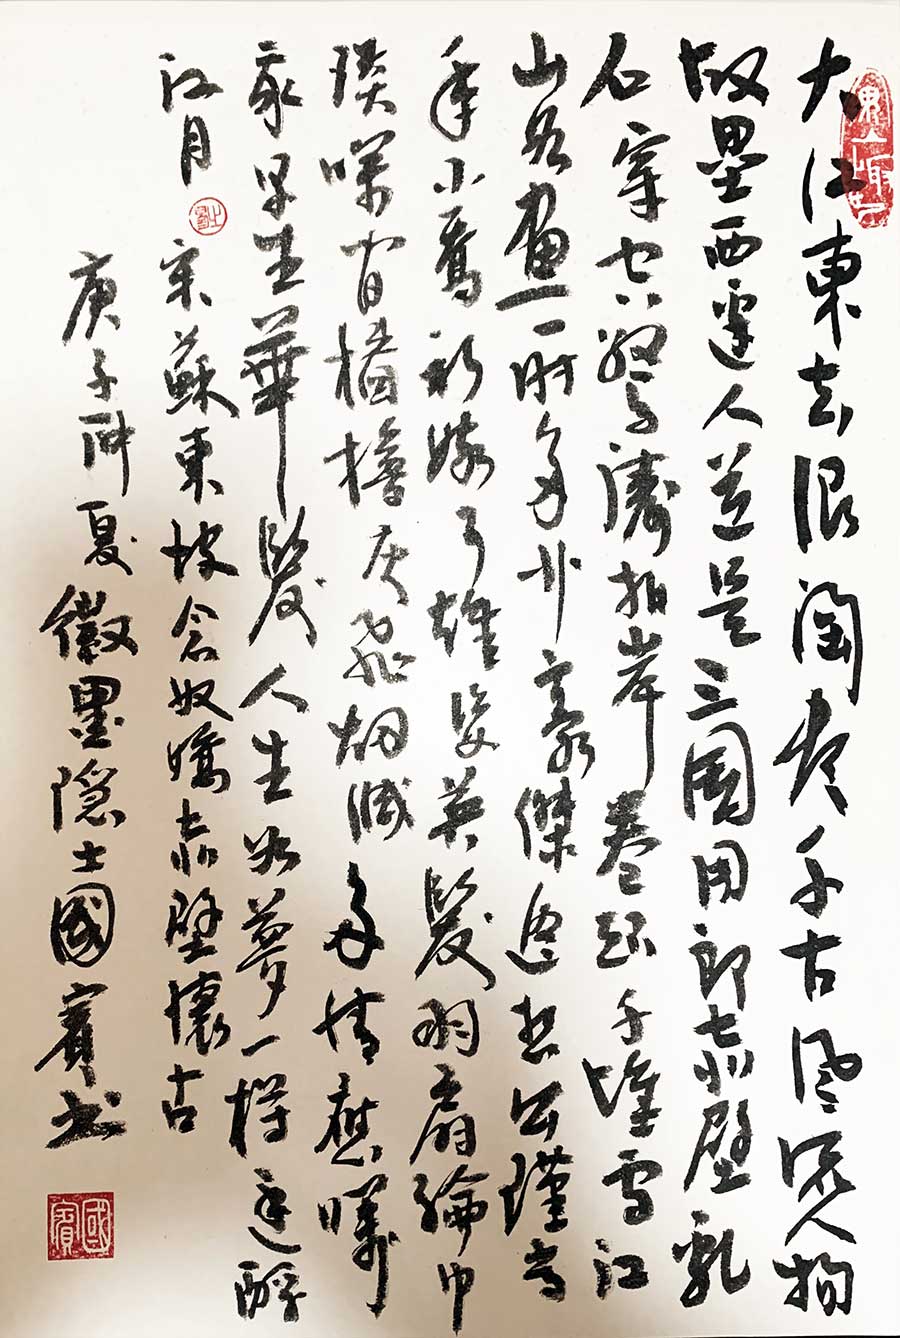 大江東去浪淘盡千古風流人物
故壘西邊人道是三國周郎赤壁亂
石穿空驚濤拍岸卷起千堆雪江
山如畫一時多少豪傑遙想公瑾當
年小喬初嫁了雄姿英發羽扇綸巾
談笑間檣櫓灰飛烟滅多情應笑
我早生華髮人生如夢一樽還酹
江月 宋蘇東坡念奴嬌赤壁懷古
庚子夏徽墨隱士國賓書
國賓